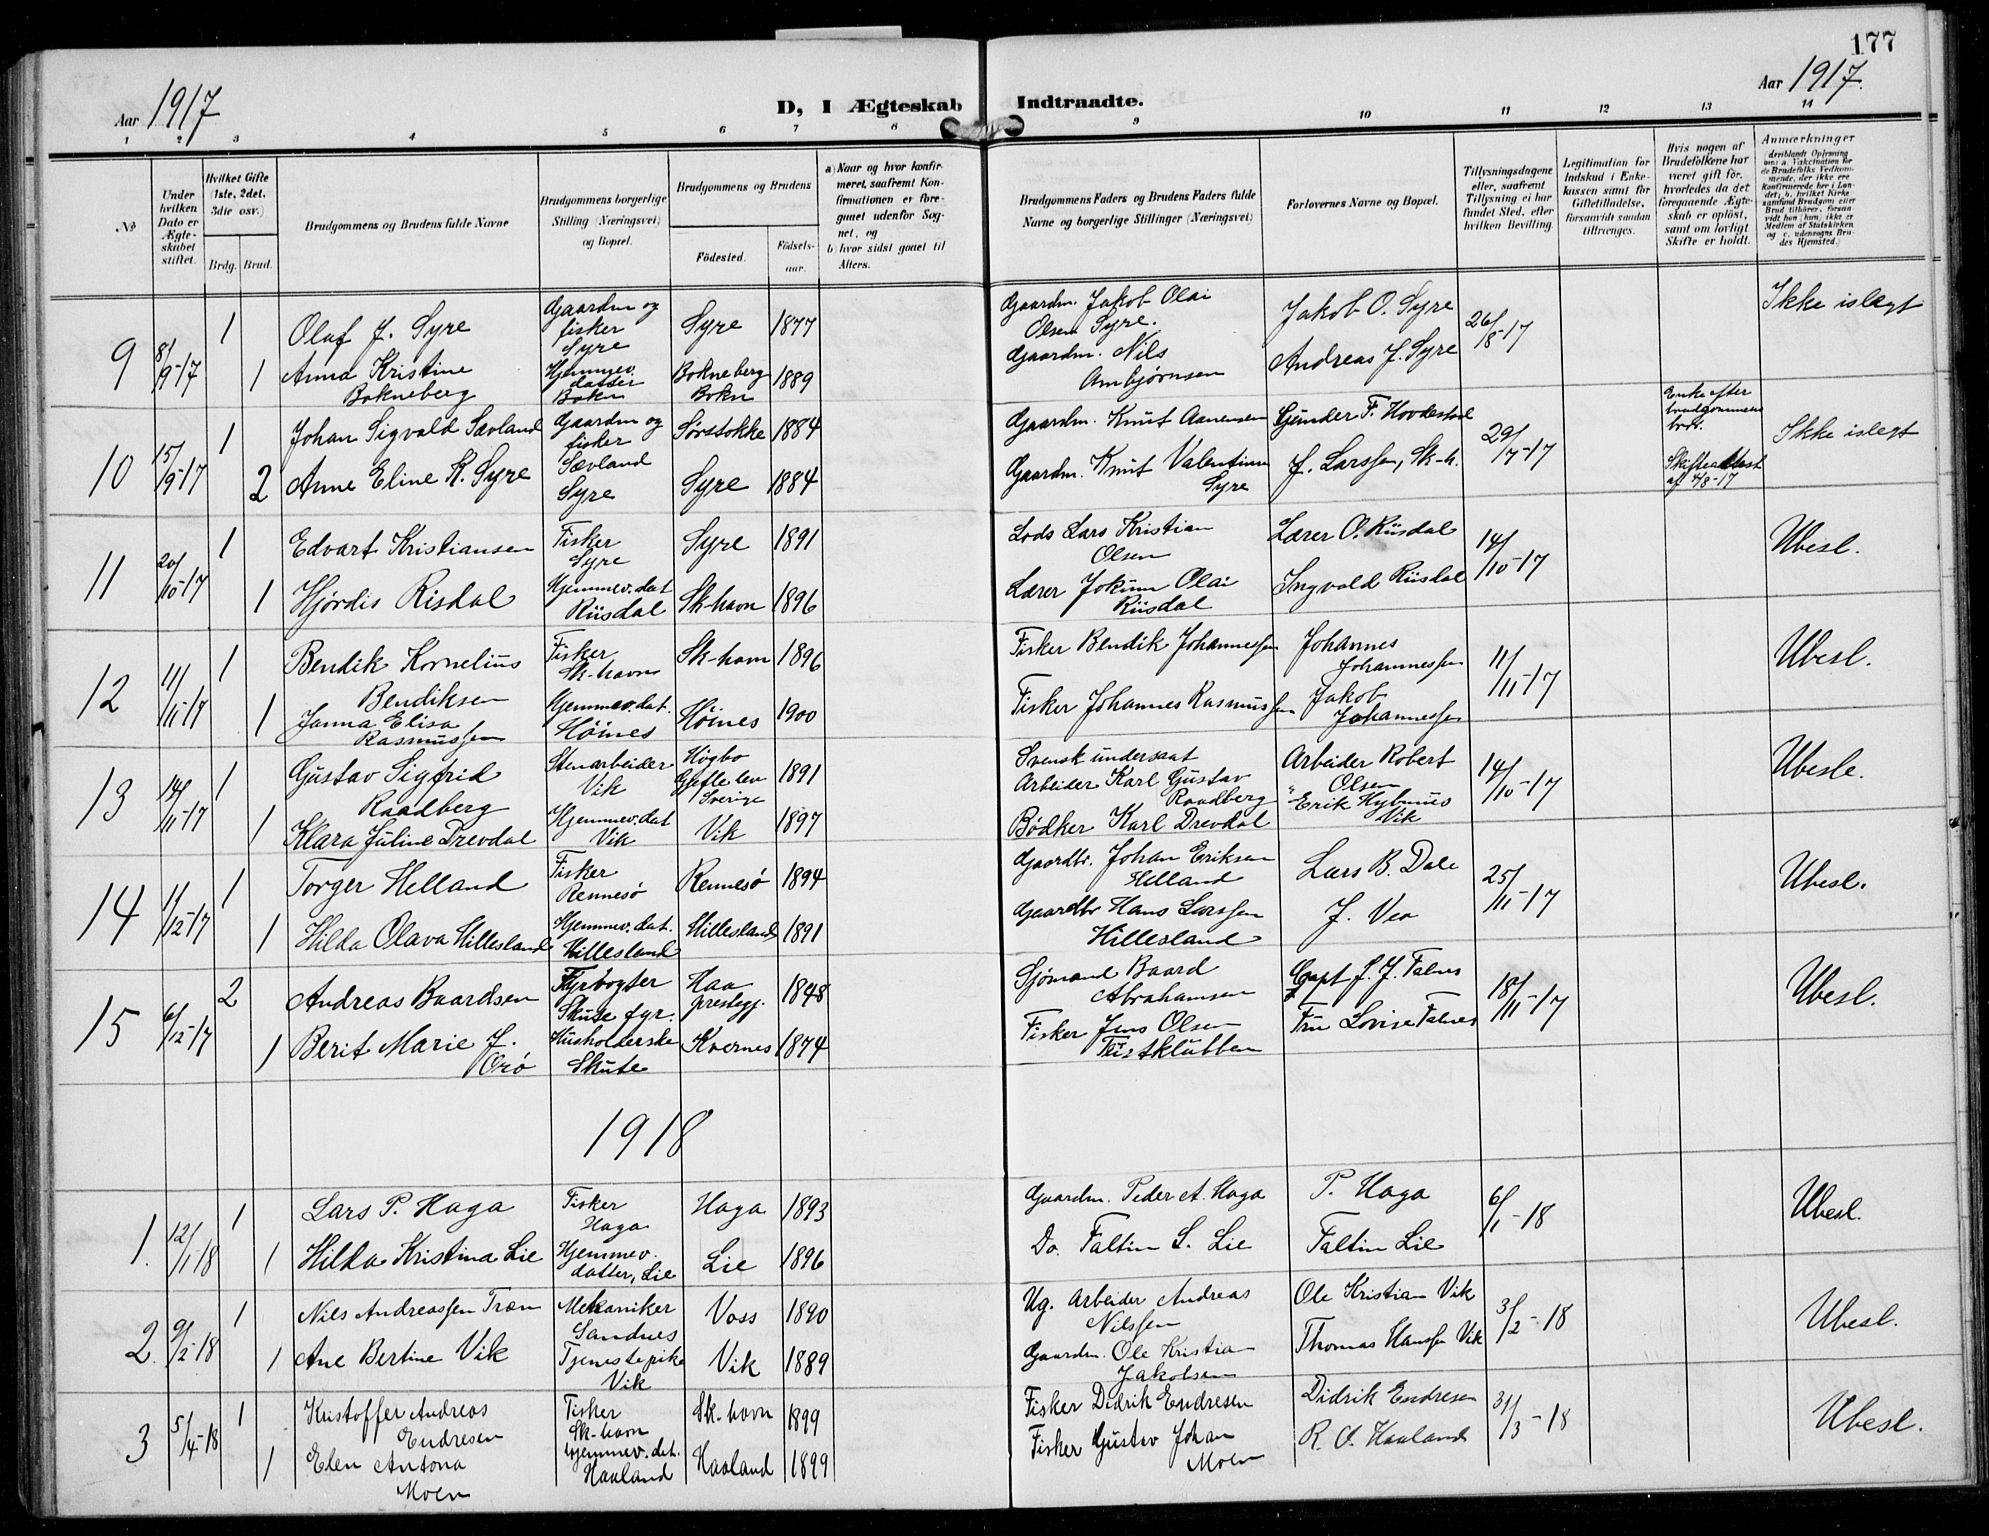 177
Aar 1917
D, I Ægteskab Indtraadte.
Aar 1917.
1 2 3 4 5 6 7 8 9 10 11 12 13 14
No
Under hvilken Dato er Ægteskabet stiftet.
Hvilket Gifte (1ste, 2det, 3die osv.)
Brdg. Brud.
Brudgommens og Brudens fulde Navne
Brudgommens borgerlige Stilling (Næringsvei) og Bopæl.
Brudgommens og Brudens
Födested.
Födselsaar.
a) Naar og hvor konfirmeret, saafremt Konfirmationen er foregaaet udenfor Sognet, og
b) hvor sidst gaaet til Alters.
Brudgommens Faders og Brudens Faders fulde Navne og borgerlige Stillinger (Næringsvei)
Forlovernes Navne og Bopæl.
Tillysningsdagene eller, saafremt Tillysning ei har fundet Sted, efter hvilken Bevilling.
Legitimation for Indskud i Enkekassen samt for Giftetilladelse, forsaavidt saadan tiltrænges.
Hvis nogen af Brudefolkene har været gift för, hvorledes da det foregaaende Ægteskab er oplöst, samt om lovligt Skifte er holdt.
Anmærkninger
(deriblandt Oplysning om: a. Vakcination for de Brudefolks Vedkommende, der ikke ere konfirmerede her i Landet; b. hvilket Kirkesamfund Brudgom eller Brud tilhörer, forsaavidt hun (han) ikke er Medlem af Statskirken og c. udensogns Brudes Hjemsted.)
9 8/9-17 1 Olaf J. Syre Gaardm og fisker Syre Syre 1877 Gaardm. Jakob Olai Olsen Syre. Jakob O. Syre 26/8-17 Ikke islegt
1 Anna Kristine Bokneberg Hjemmev. datter Bokn Bokneberg Bokn 1889 Gaardm. Nils Ambjørnsen Andreas J. Syre
10 15/9-17 1 Johan Sigvald Sævland Gaardm og fisker Sævland Sørstokke 1884 Gaardm. Knut Aanensen Gunder F. Hovdestad 29/7-17 Enke efter brudgommens bror. Ikke islegt
2 Anne Eline K. Syre Syre Syre 1884 Gaardm. Knut Valentin Syre J. Larssen, Sk-h. Skifteattest af /8-17
11 20/10-17 1 Edvart Kristiansen Fisker Syre Syre 1891 Lods Lars Kristian Olsen Lærer O. Riisdal 14/10-17 Ubesl.
1 Hjördis Risdal Hjemmev. dat Riisdal Sk-havn 1896 Lærer Jokum Olai Riisdal Ingvald Riisdal
12 11/11-17 1 Bendik Kornelius Bendiksen Fisker Sk-havn Sk-havn 1896 Fisker Bendik Johannessen Johannes Johannessen 11/11-17 Ubesl.
1 Janna Elisa Rasmussen Hjemmev. dat. Höines Höines 1900 Fisker Johannes Rasmussen Jakob Johannessen
13 14/11-17 1 Gustav Sigfrid Raadberg Stenarbeider Vik Högbo Gefle len Sverige 1891 Svensk undersaat Arbeider Karl Gustav Raadberg Arbeider Robert Olsen 14/10-17 Ubesl.
1 Klara Juline Drevdal Hjemmev. dat Vik Vik 1897 Bödker Karl Drevdal " Erik Vik
14 1/12-17 1 Torger Helland Fisker Rennesö Rennesö 1894 Gaardbr. Johan Eriksen Helland Lars B. Dale 25/11-17 Ubesl.
1 Hilda Olava Hillesland Hjemmev. dat. Hillesland Hillesland 1891 Gaardbr Hans Larssen Hillesland J. Vea
15 6/12-17 2 Andreas Baardsen Fyrvogter Skute fyr. Haa prestegj. 1848 Sjömand Baard Abrahamsen Capt J. J. Falnes 18/11-17 Ubesl.
1 Berit Marie J. Orö Husholderske Skute Kvernes 1874 Fisker Jens Olsen Fru Lovise Falnes
1918
1. 12/1-18 1 Lars P. Haga Fisker Haga Haga 1893 Gaardm. Peder A. Haga P. Haga 6/1-18 Ubesl.
1 Hilda Kristina Lie Hjemmev. datter, Lie Lie 1896 Do. Faltin S. Lie Faltin Lie
2. 9/2-18 1 Nils Andreassen Træn Mekaniker Sandnes Voss 1890 Ug. Arbeider Andreas Nilssen Ole Kristian Vik 3/2-18 Ubesl.
1 Ane Bertine Vik Tjenestepike Vik Vik 1889 Gaardm. Ole Kristian Jakobsen Thomas Hanssen Vik
3 5/4-18 1 Kristoffer Andreas Endresen Fisker Sk-havn Sk-havn 1899 Fisker Didrik Endresen Didrik Endresen 31/3-18 Ubesl.
1 Elen Antona Moen Hjemmev. dat. Haaland Haaland 1899 Fisker Gustav Johan Moen R. O. Haaland